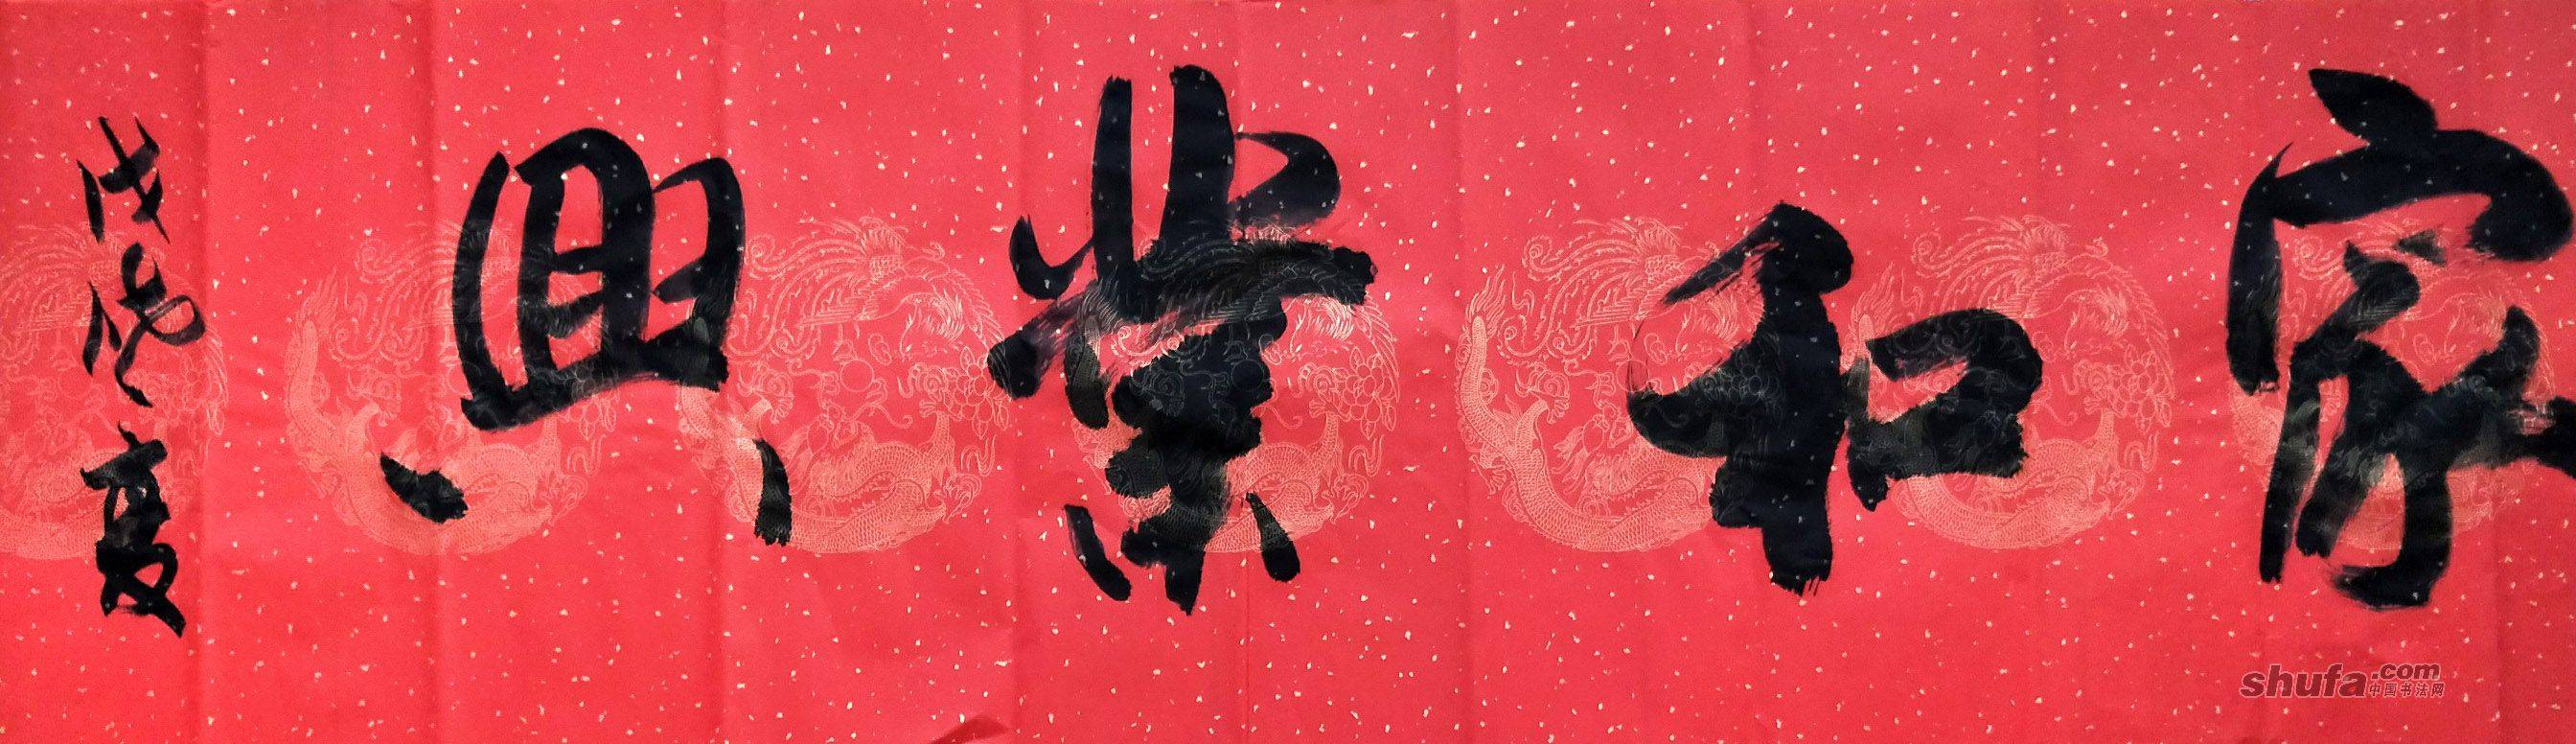 家和業興
戊戌夏
shufa.com
中国书法网